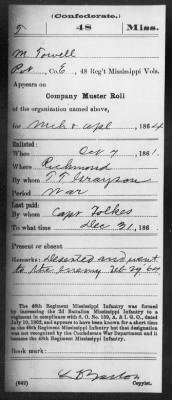 (Confederate.)
T 48 Miss.
M. Towell
Pvt, Co. E, 48 Reg't Mississippi Vols.
Appears on
Company Muster Roll
of the organization named above,
for Mch & Apl, 1864
Enlisted:
When Oct 7, 1861.
Where Richmond
By whom T. T. Grayson
Period War
Last paid:
By whom Capt Folkes
To what time Dec 31, 186
Present or absent
Remarks: Deserted and went
to the enemy Feb 29 64
The 48th Regiment Mississippi Infantry was formed
by increasing the 2d Battalion Mississippi Infantry to a
regiment in compliance with S. O. No. 159, A. & I. G. O., dated
July 10, 1862, and appears to have been known for a short time
as the 45th Regiment Mississippi Infantry but that designation
was not recognized by the Confederate War Department and it
became the 48th Regiment Mississippi Infantry.
Book mark:
(642) Copyist.